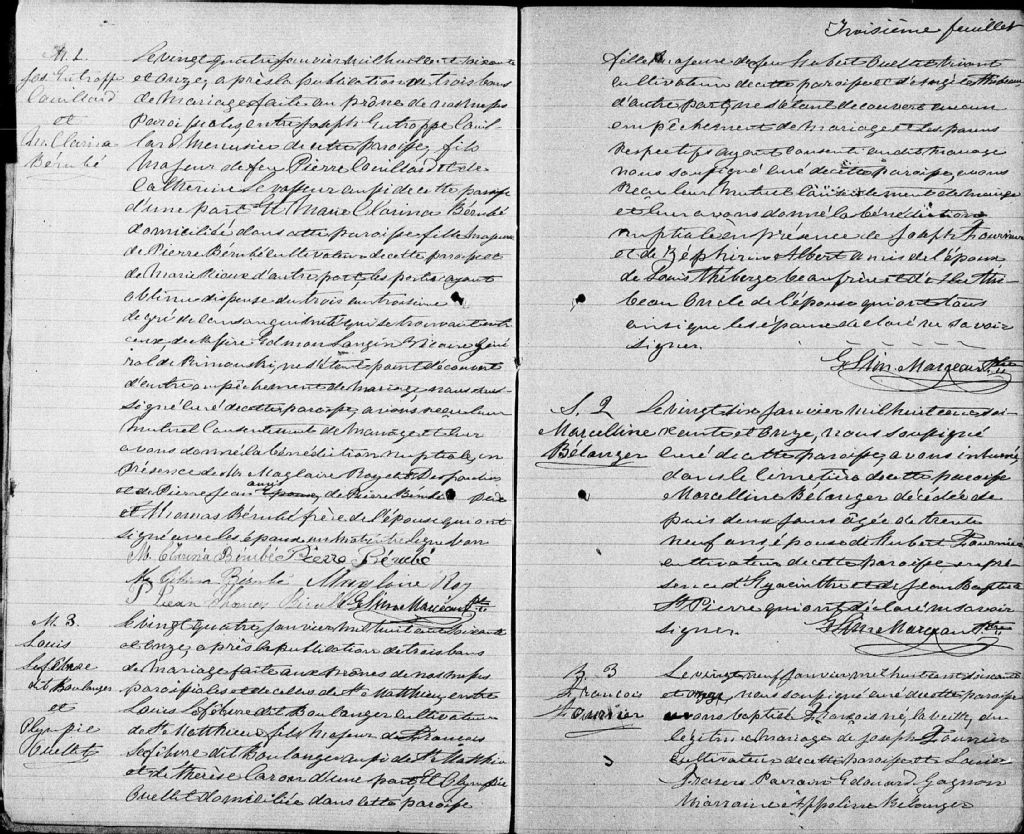 M. 2
Jos Eutroppe
Couillard
et
M. Clarina
Bérubé
Le vingt quatre janvier mil huit cent soixante
et onze, après la publication de trois bans
de mariage faite au prône de nos messes
paroissiales, entre Joseph Eutroppe Couil-
lard Menuisier de cette paroisse, fils
Majeur de feu Pierre Couillard et de
Catherine Levasseur aussi de cette paroisse
d'une part Et Marie Clarina Bérubé
domiciliée dans cette paroisse, fille Majeure
de Pierre Bérubé cultivateur de cette paroisse et
de Marie Rioux d'autre part, les parties ayant
obtenu dispense du trois au troisième
degré de consanguinité qui se trouvait entr'
eux, de Edmond Langevin Vicaire Géné
ral de Rimouski, ne s'étant point découvert
d'autre empêchement de mariage, nous sous-
signé curé de cette paroisse, avons reçu leur
mutuel consentement de mariage et leur
avons donné la bénédiction nuptiale, en
présence de Maglaire Roy
et de Pierre Jean de Pierre Bérubé père
et Thomas Bérubé frère de l'épouse qui ont
signé avec les époux
M. Clarina Bérubé Pierre Bérubé
Bérubé Maglaire Roy
P Jean Thomas G. Slin Marceau Ptre
M. 3.
Louis
Lefebvre
dit Boulanger
et
Olympie
Ouellet
Le vingt quatre janvier mil huit cent soixante
et onze, après la publication de trois bans
de mariage faite aux prônes de nos messes
paroissiales et de celles de St Matthieu, entre
Louis Lefebvre dit Boulanger cultivateur
de St Matthieu, fils majeur de François
Lefebvre dit Boulanger aussi de St Matthieu
et de Therèse Caron d'une part, Et Olympie
Ouellet domiciliée dans cette paroisse
Troisième feuillet
fille Majeure de feu Hubert Ouellet vivant
cultivateur de cette paroisse et d'Angèle Thibeau
d'autre part, ne s'étant découvert aucun
empêchement de mariage et les parens
respectifs ayant consenti au dit mariage
nous soussigné curé de cette paroisse, avons
reçu leur mutuel consentement de mariage
et leur avons donné la bénédiction
nuptiale en présence de Joseph Fournier
et de Zéphirin Albert amis de l'époux
de Louis Théberge beau frère et de Thi-
beau Oncle de l'épouse qui ont tous
ainsi que les époux déclaré ne savoir
signer.
G. Slin Marceau Ptre
S. 2
Marcelline
Bélanger
Le vingt six janvier mil huit cent soi-
xante et onze, nous soussigné
curé de cette paroisse, avons inhumé
dans le cimetière de cette paroisse
Marcelline Bélanger décédée de
puis deux jours âgée de trente
neuf ans, épouse de Hubert Fournier
cultivateur de cette paroisse en pré-
sence d'Hyacinthe et de Jean Baptiste
St Pierre qui ont déclaré ne savoir
signer.
G. Slin Marceau Ptre
B. 3
François
Fournier
Le vingt neuf janvier mil huit cent soixante
et onze, nous soussigné curé de cette paroisse
avons baptisé François né, la veille, du
légitime mariage de Joseph Fournier
cultivateur de cette paroisse et de Louise
Parrain Edouard Gagnon
Marraine Appoline Bélanger